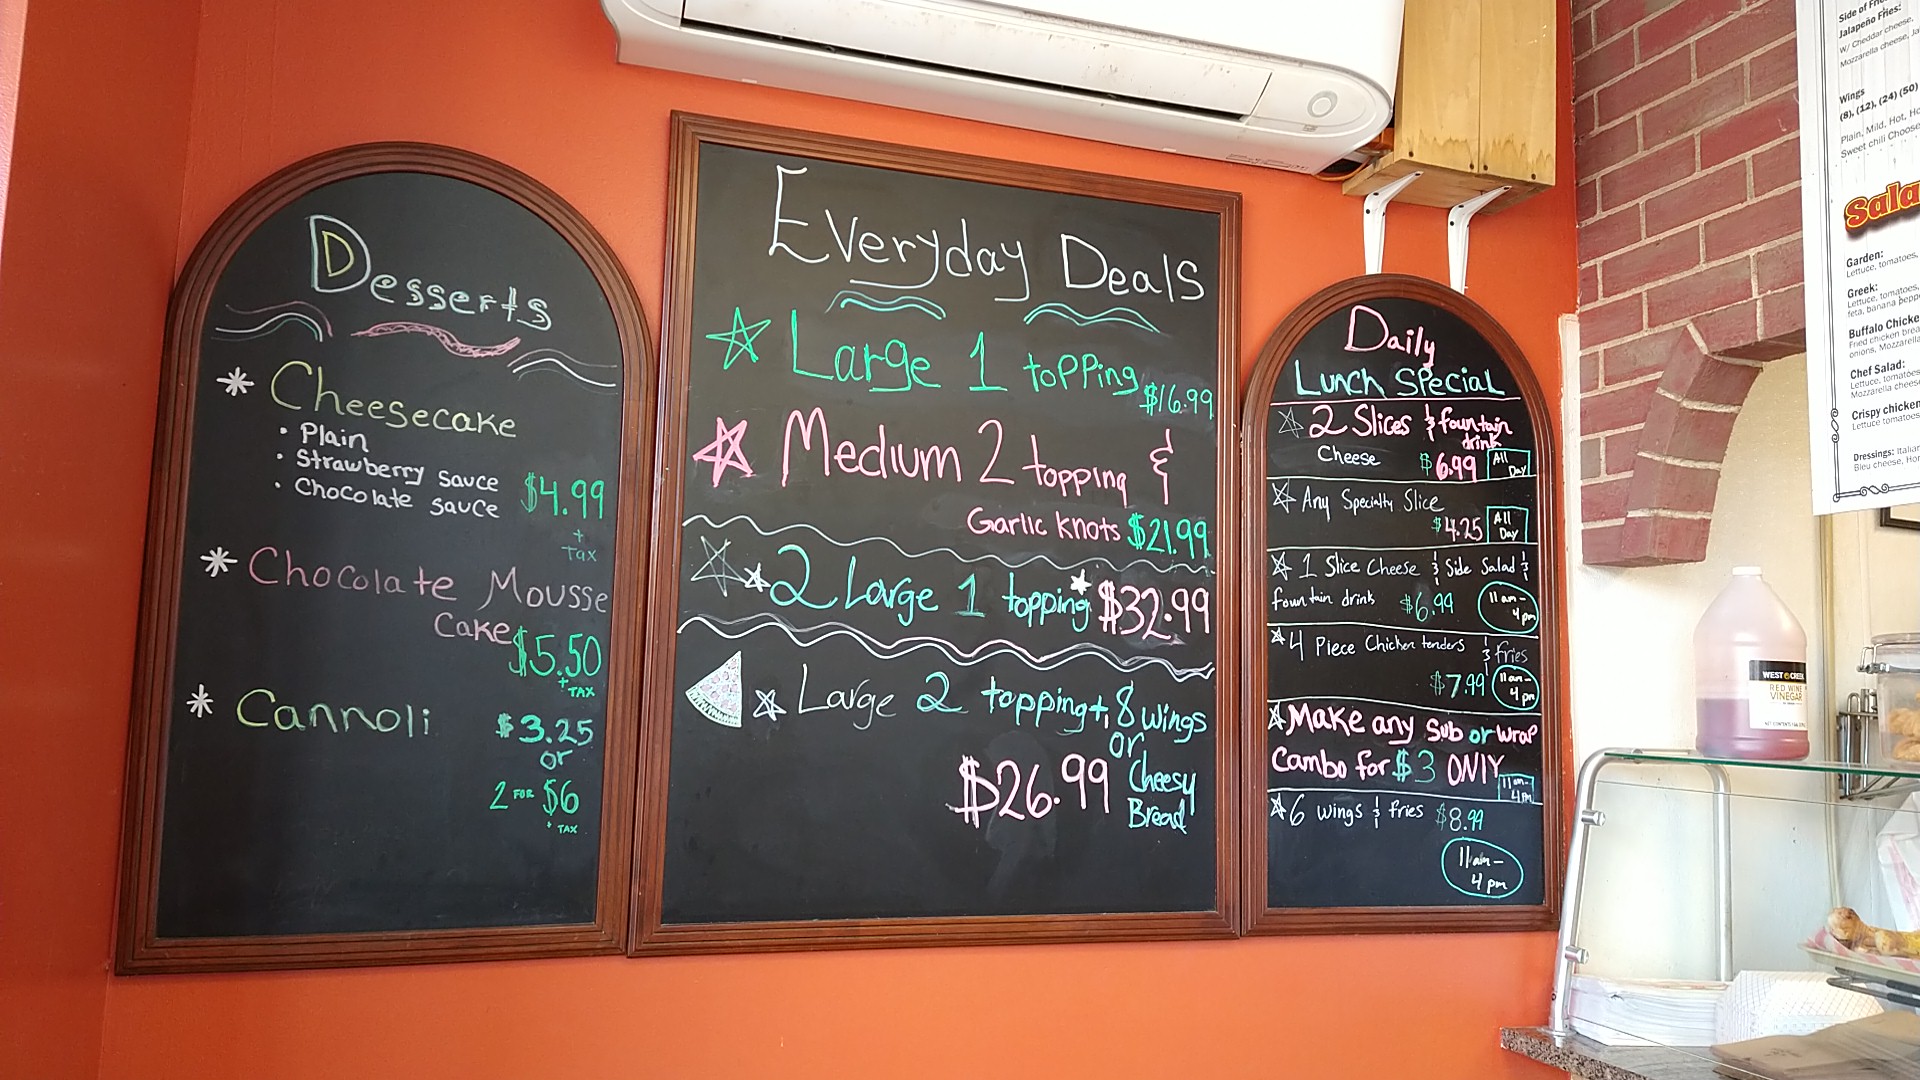 Desserts
* Cheesecake
• Plain
• Strawberry sauce
• Chocolate sauce
$4.99
+
tax
* Chocolate Mousse
Cake
$5.50
+ TAX
* Cannoli
$3.25
or
2 FOR $6
+ TAX
Everyday Deals
Large 1 topping
$16.99
Medium 2 topping &
Garlic Knots $21.99
2 Large 1 topping $32.99
Large 2 topping + 8 wings
or
$26.99 Cheesy
Bread
Daily
Lunch Special
2 Slices & fountain
drink
Cheese $6.99 All
Day
Any Specialty Slice
$4.25 All
Day
1 Slice Cheese & Side Salad &
fountain drink $6.99 11am-
4pm
4 Piece Chicken tenders & fries
$7.99 11am-
4pm
Make any Sub or wrap
Combo for $3 ONLY
11am-
4PM
6 wings & fries $8.99
11am-
4pm
Jalapeño Fries:
W/ Cheddar cheese,
Mozzarella cheese,
Wings
(8), (12), (24) (50)
Plain, Mild, Hot,
Sweet chili
Garden:
Lettuce, tomatoes,
Greek:
Lettuce, tomatoes,
feta, banana
Buffalo
Fried chicken
onions, Mozzarella
Chef Salad:
Lettuce, tomatoes
Mozzarella
Crispy chicken
Lettuce tomatoes
Dressings:
Bleu cheese,
WEST CREEK
RED WINE
VINEGAR